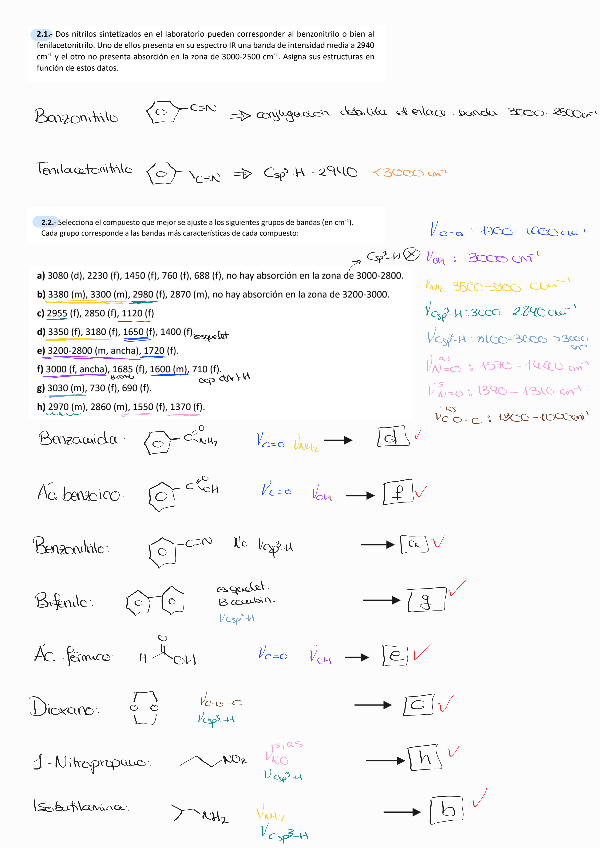 2.1.- Dos nitrilos sintetizados en el laboratorio pueden corresponder al benzonitrilo o bien al
fenilacetonitrilo. Uno de ellos presenta en su espectro IR una banda de intensidad media a 2940
cm⁻¹ y el otro no presenta absorción en la zona de 3000-2500 cm⁻¹. Asigna sus estructuras en
función de estos datos.
Benzonitrilo C≡N ⇒ conjugación debilita el enlace. banda 3000-2500cm⁻¹
Fenilacetonitrilo C≡N ⇒ Csp³-H · 2940 <3000 cm⁻¹
2.2.- Selecciona el compuesto que mejor se ajuste a los siguientes grupos de bandas (en cm⁻¹).
Cada grupo corresponde a las bandas más características de cada compuesto:
Csp³-H
a) 3080 (d), 2230 (f), 1450 (f), 760 (f), 688 (f), no hay absorción en la zona de 3000-2800.
b) 3380 (m), 3300 (m), 2980 (f), 2870 (m), no hay absorción en la zona de 3200-3000.
c) 2955 (f), 2850 (f), 1120 (f)
d) 3350 (f), 3180 (f), 1650 (f), 1400 (f) esquelet
e) 3200-2800 (m, ancha), 1720 (f).
f) 3000 (f, ancha), 1685 (f), 1600 (m), 710 (f).
g) 3030 (m), 730 (f), 690 (f).
h) 2970 (m), 2860 (m), 1550 (f), 1370 (f).
νOH : 3000 cm⁻¹
νNH: 3500-3300 cm⁻¹
νCsp³-H: 3000 2840cm⁻¹
νCsp²-H: 3100-3000 >3000
cm⁻¹
νN=O : 1570-1400 cm⁻¹
νN=O : 1390-1310 cm⁻¹
Benzamida. C O NH₂ νC=O νNH₂ → d ✓
Ác. benzoico. C O OH νC=O νOH → f ✓
Benzonitrilo: C≡N No νCsp³-H → a ✓
Bifenilo: esquelet.
νCsp²-H → g ✓
Ác. fórmico: H O OH νC=O νOH → e ✓
Dioxano: O O νC-O-C
νCsp³-H → c ✓
1-Nitropropano: NO₂ νNO s, as
νCsp³-H → h ✓
Isobutilamina: NH₂ νNH₂
νCsp³-H → b ✓